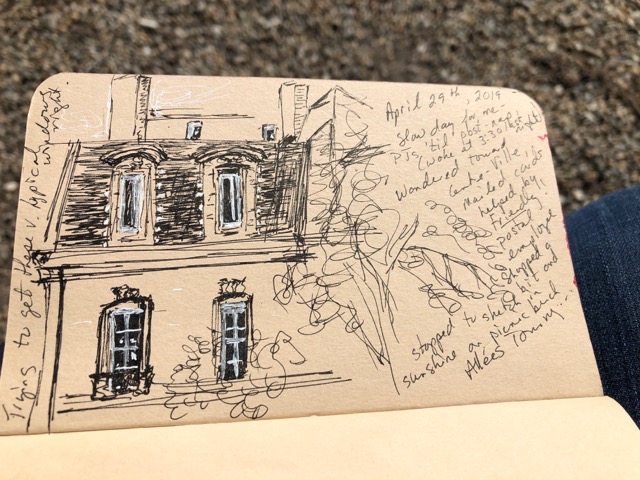 Trying to get these v. typical
windows right.
April 29th, 2019
Slow day for me -
PJs 'til post-nap
(woke at 3:30 night)
Wondered town
centre-ville,
mailed cards
helped by
friendly
postal
employee
stopped
bit and
stopped to
sunshine on picnic
Allées Tourny.